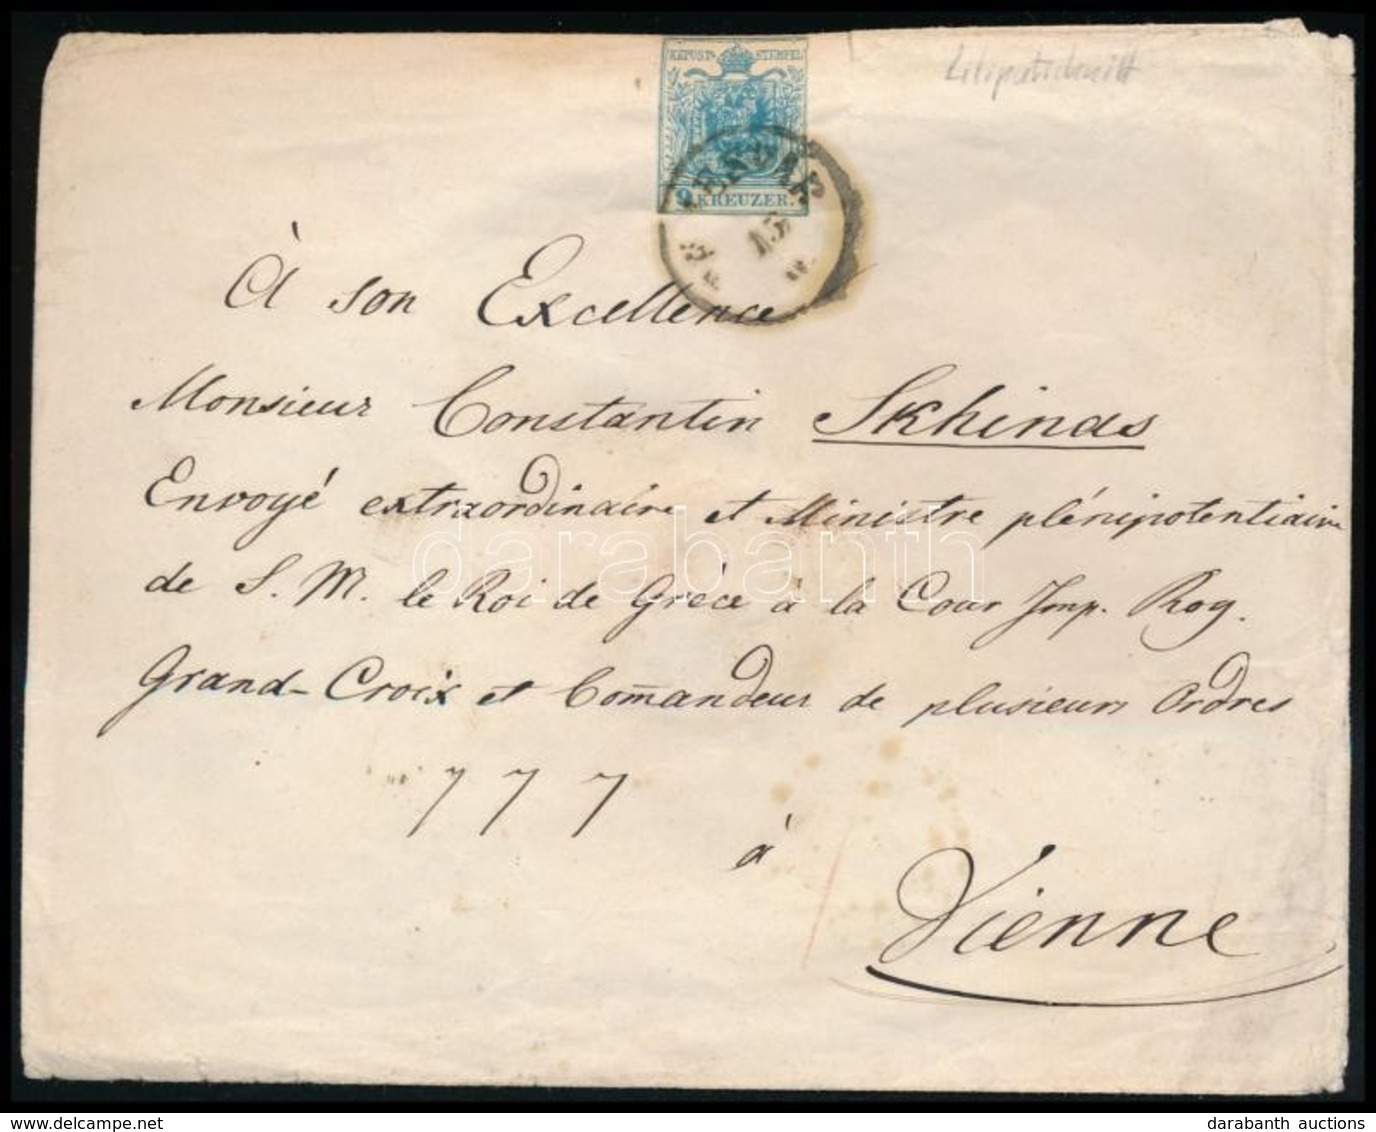 Liliputschnitt
KKPOST-STEMPEL
9 KREUZER.
15
À son Excellence
Monsieur Constantin Skhinas
Envoyé extraordinaire et Ministre plénipotentiaire
de S. M. le Roi de Grèce à la Cour Imp. Roy.
Grand-Croix et Com̄andeur de plusieurs Ordres
777
à
Vienne
darabanth
darabanth auctions